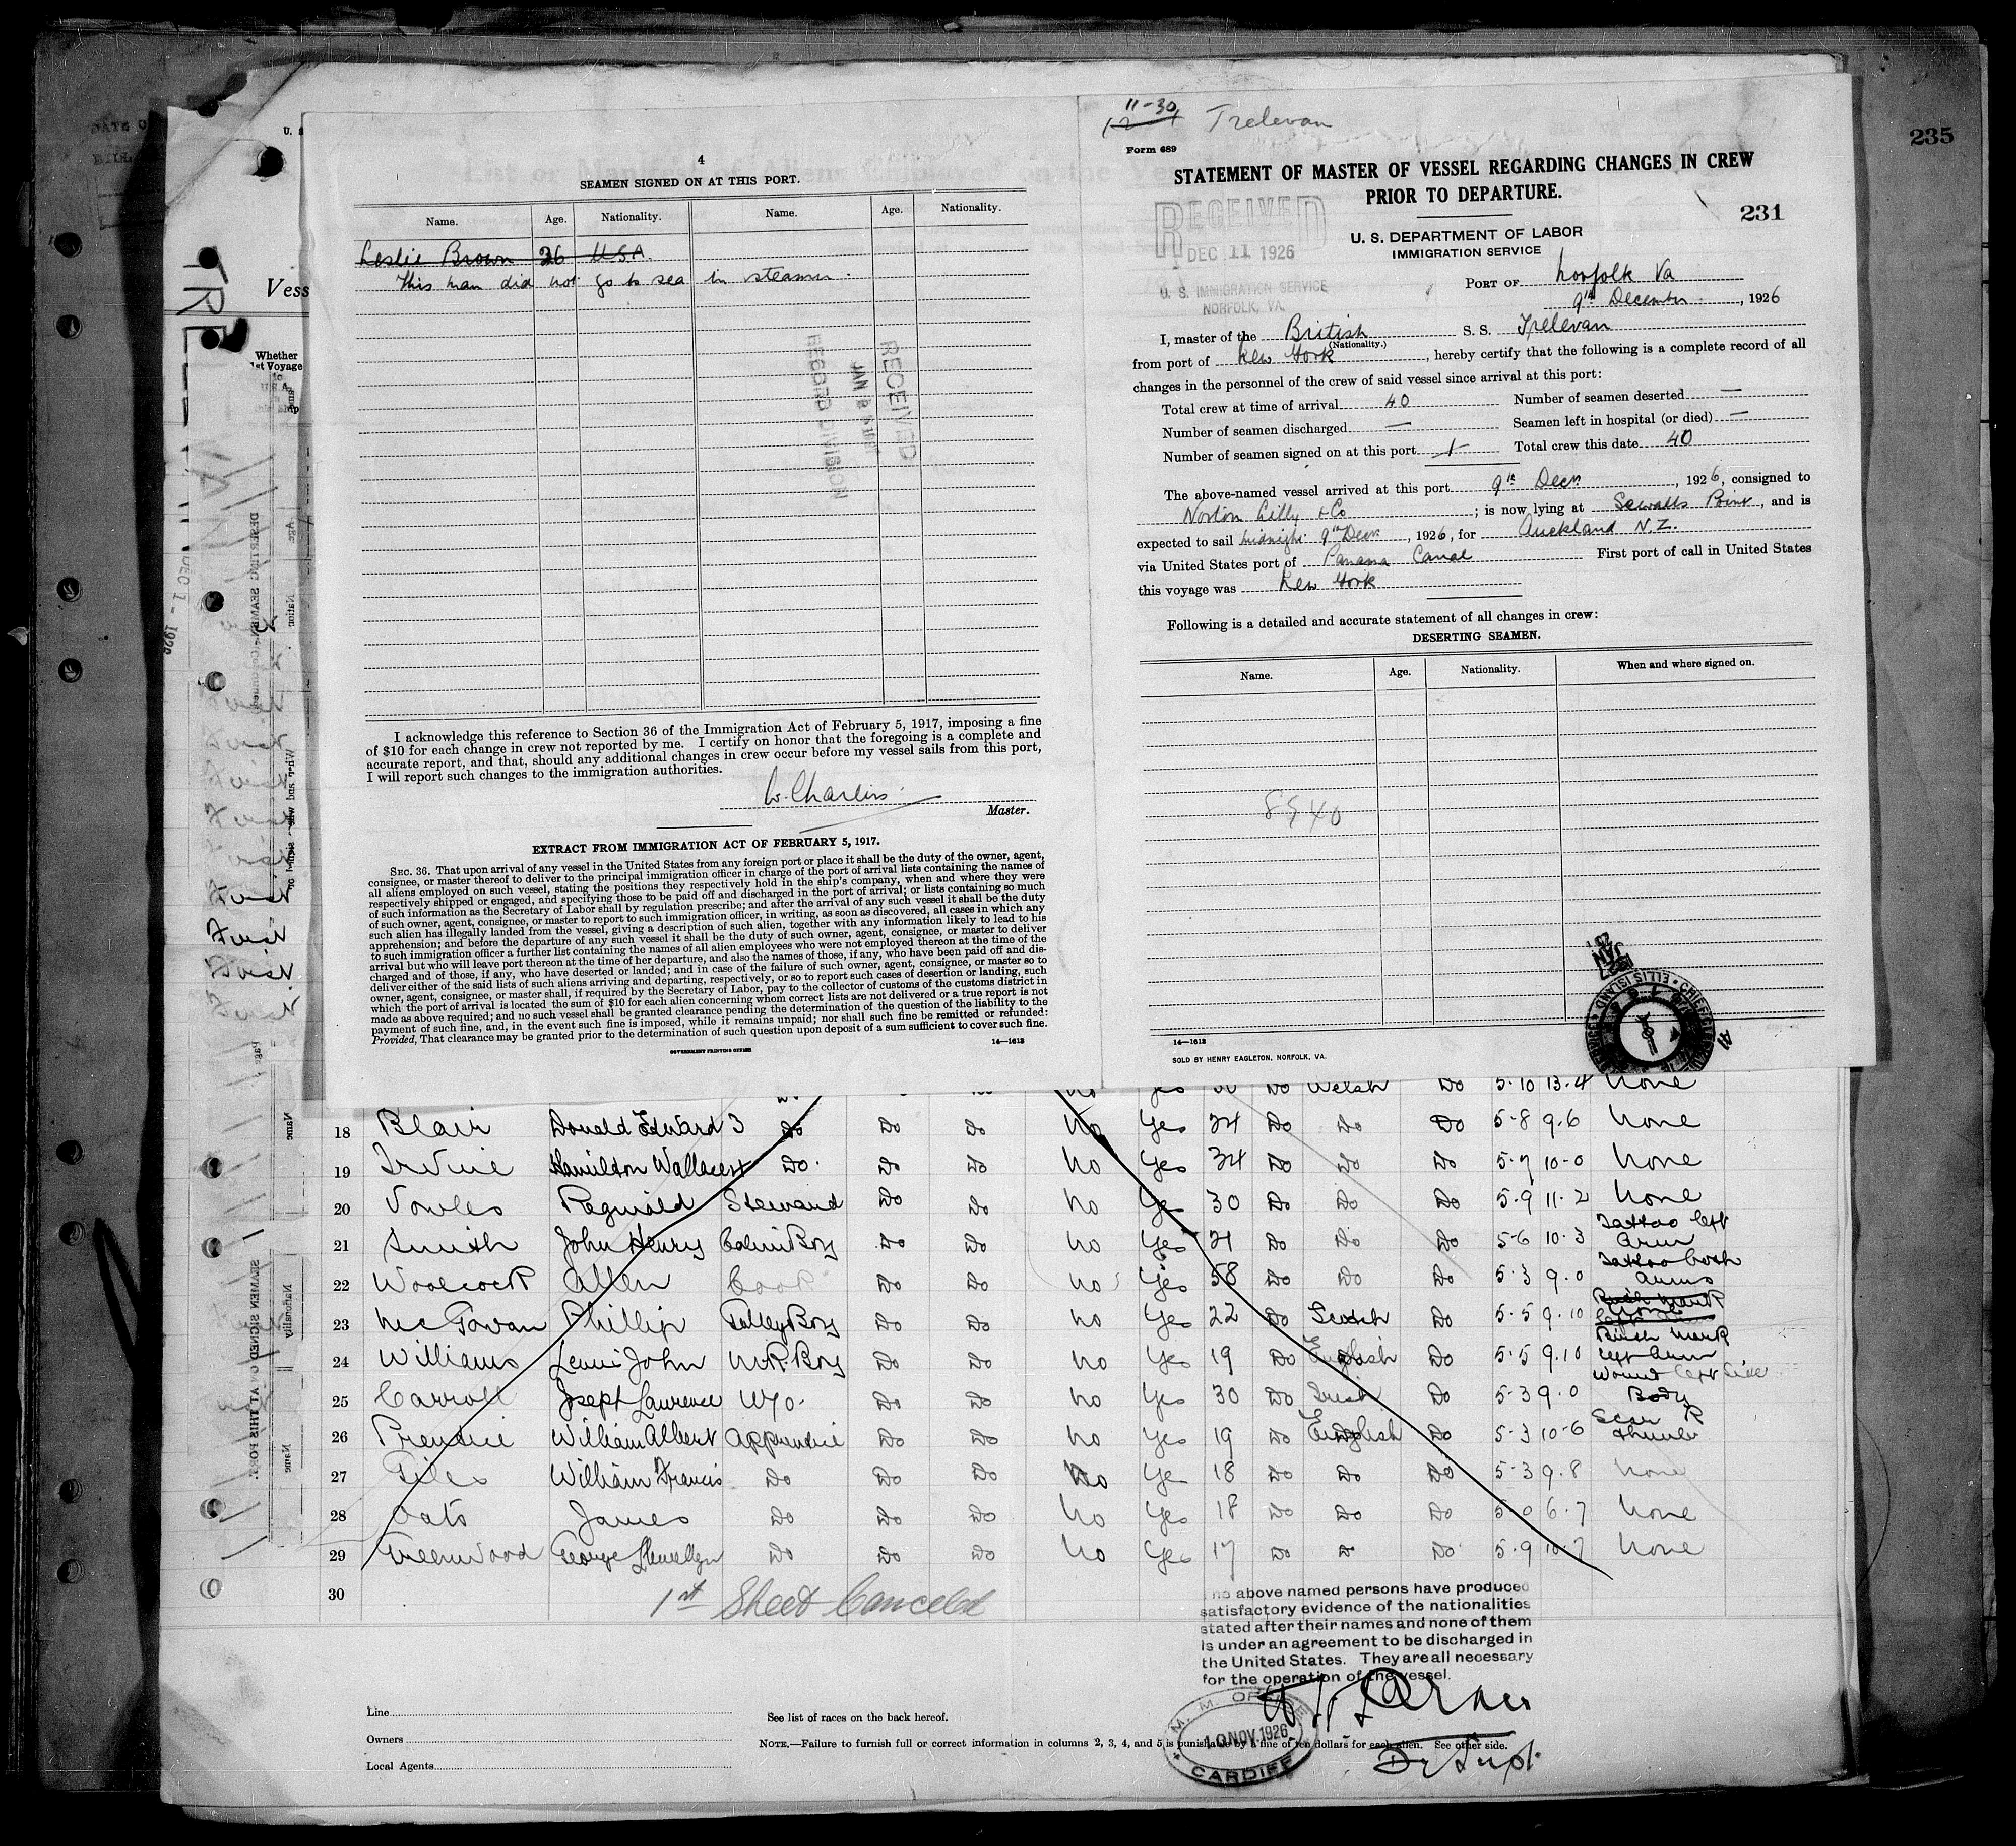 235
4
SEAMEN SIGNED ON AT THIS PORT.
Name. Age. Nationality. Name. Age. Nationality.
Leslie Brown 26 USA
This man did not go to sea in steamer.
RECEIVED
RECORD DIVISION
I acknowledge this reference to Section 36 of the Immigration Act of February 5, 1917, imposing a fine
of $10 for each change in crew not reported by me. I certify on honor that the foregoing is a complete and
accurate report, and that, should any additional changes in crew occur before my vessel sails from this port,
I will report such changes to the immigration authorities.
Master.
EXTRACT FROM IMMIGRATION ACT OF FEBRUARY 5, 1917.
SEC. 36. That upon arrival of any vessel in the United States from any foreign port or place it shall be the duty of the owner, agent,
consignee, or master thereof to deliver to the principal immigration officer in charge of the port of arrival lists containing the names of
all aliens employed on such vessel, stating the positions they respectively hold in the ship's company, when and where they were
respectively shipped or engaged, and specifying those to be paid off and discharged in the port of arrival; or lists containing so much
of such information as the Secretary of Labor shall by regulation prescribe; and after the arrival of any such vessel it shall be the duty
of such owner, agent, consignee, or master to report to such immigration officer, in writing, as soon as discovered, all cases in which any
such alien has illegally landed from the vessel, giving a description of such alien, together with any information likely to lead to his
apprehension; and before the departure of any such vessel it shall be the duty of such owner, agent, consignee, or master to deliver
to such immigration officer a further list containing the names of all alien employees who were not employed thereon at the time of the
arrival but who will leave port thereon at the time of her departure, and also the names of those, if any, who have been paid off and dis-
charged and of those, if any, who have deserted or landed; and in case of the failure of such owner, agent, consignee, or master so to
deliver either of the said lists of such aliens arriving and departing, respectively, or so to report such cases of desertion or landing, such
owner, agent, consignee, or master shall, if required by the Secretary of Labor, pay to the collector of customs of the customs district in
which the port of arrival is located the sum of $10 for each alien concerning whom correct lists are not delivered or a true report is not
made as above required; and no such vessel shall be granted clearance pending the determination of the question of the liability to the
payment of such fine, and, in the event such fine is imposed, while it remains unpaid; nor shall such fine be remitted or refunded:
Provided, That clearance may be granted prior to the determination of such question upon deposit of a sum sufficient to cover such fine.
GOVERNMENT PRINTING OFFICE 14—1613
11-30 Trelevan
Form 689
STATEMENT OF MASTER OF VESSEL REGARDING CHANGES IN CREW
PRIOR TO DEPARTURE.
231
RECEIVED
DEC 11 1926
U. S. IMMIGRATION SERVICE
NORFOLK, VA.
U. S. DEPARTMENT OF LABOR
IMMIGRATION SERVICE
PORT OF Norfolk Va
9th December, 1926
I, master of the British S. S. Trelevan
(Nationality.)
from port of New York, hereby certify that the following is a complete record of all
changes in the personnel of the crew of said vessel since arrival at this port:
Total crew at time of arrival 40 Number of seamen deserted —
Number of seamen discharged — Seamen left in hospital (or died) —
Number of seamen signed on at this port 1 Total crew this date 40
The above-named vessel arrived at this port 9th Decr, 1926, consigned to
Norton Lilly & Co; is now lying at Sewalls Point, and is
expected to sail midnight 9th Decr, 1926, for Auckland N.Z.
via United States port of Panama Canal First port of call in United States
this voyage was New York
Following is a detailed and accurate statement of all changes in crew:
DESERTING SEAMEN.
Name. Age. Nationality. When and where signed on.
8940
14—1613
SOLD BY HENRY EAGLETON, NORFOLK, VA.
Vess
Whether
1st Voyage
Welsh Do 5-10 13-4 None
18 Blair Donald Edward 3 Do Do Do No Yes 24 Do Do Do 5-8 9-6 None
19 Irvine Hamilton Wallace Do Do Do No Yes 34 Do Do Do 5-7 10-0 None
20 Vowles Reginald Steward Do Do No Yes 30 Do Do Do 5-9 11-2 None
21 Smith John Henry Cabin Boy Do Do No Yes 21 Do Do Do 5-6 10-3 Tattoo left arm
22 Woolcock Allen Cook Do Do No Yes 58 Do Do Do 5-3 9-0 Tattoo both arms
23 McGavan Phillip Galley Boy Do Do No Yes 22 Do Scotch Do 5-5 9-10 None
24 Williams Lewis John M.R. Boy Do Do No Yes 19 Do English Do 5-5 9-10 Birth mark left arm
25 Carroll Joseph Lawrence W/O Do Do No Yes 30 Do Irish Do 5-3 9-0 Wound left side Body
26 Prendice William Albert Apprentice Do Do No Yes 19 Do English Do 5-3 10-6 Scar R thumb
27 Giles William Francis Do Do Do No Ye 18 Do Do Do 5-3 9-8 None
28 Oats James Do Do Do No Yes 18 Do Do Do 5-0 6-7 None
29 Greenwood George Llewellyn Do Do Do No Yes 17 Do Do Do 5-9 10-7 None
30 1st Sheet Canceled
above named persons have produced
satisfactory evidence of the nationalities
stated after their names and none of them
is under an agreement to be discharged in
the United States. They are all necessary
for the operation of the vessel.
Line
Owners
Local Agents
See list of races on the back hereof.
NOTE.—Failure to furnish full or correct information in columns 2, 3, 4, and 5 is punishable by a fine of ten dollars for each alien. See other side.
M. M. OFFICE
10 NOV. 1926
CARDIFF